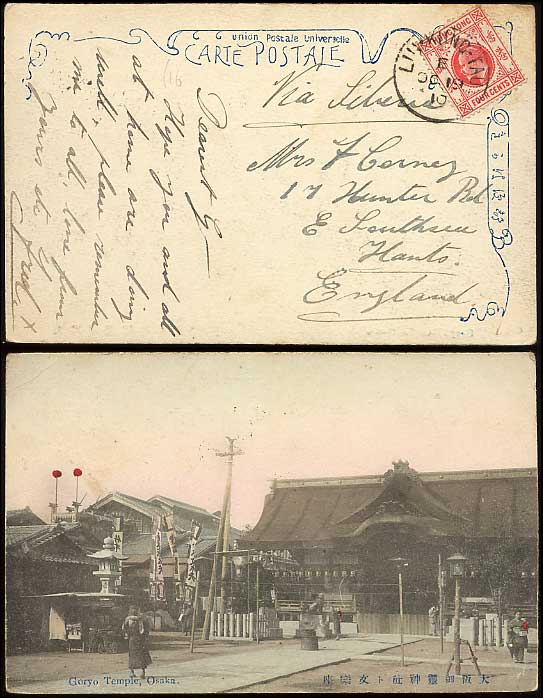 Union Postale Universelle
CARTE POSTALE
HONG KONG
FOUR CENTS
LIU KUNG TAU
19
10
16
Via Siberia
Mrs F Corney
17 Hunter Rd
E Southsea
Hants.
England.
Dearest G
Hope you and all
at home are doing
well, please remember
me to all, love from
Yours etc
Fred X
Goryo Temple, Osaka.
大阪御靈神社ト文樂座